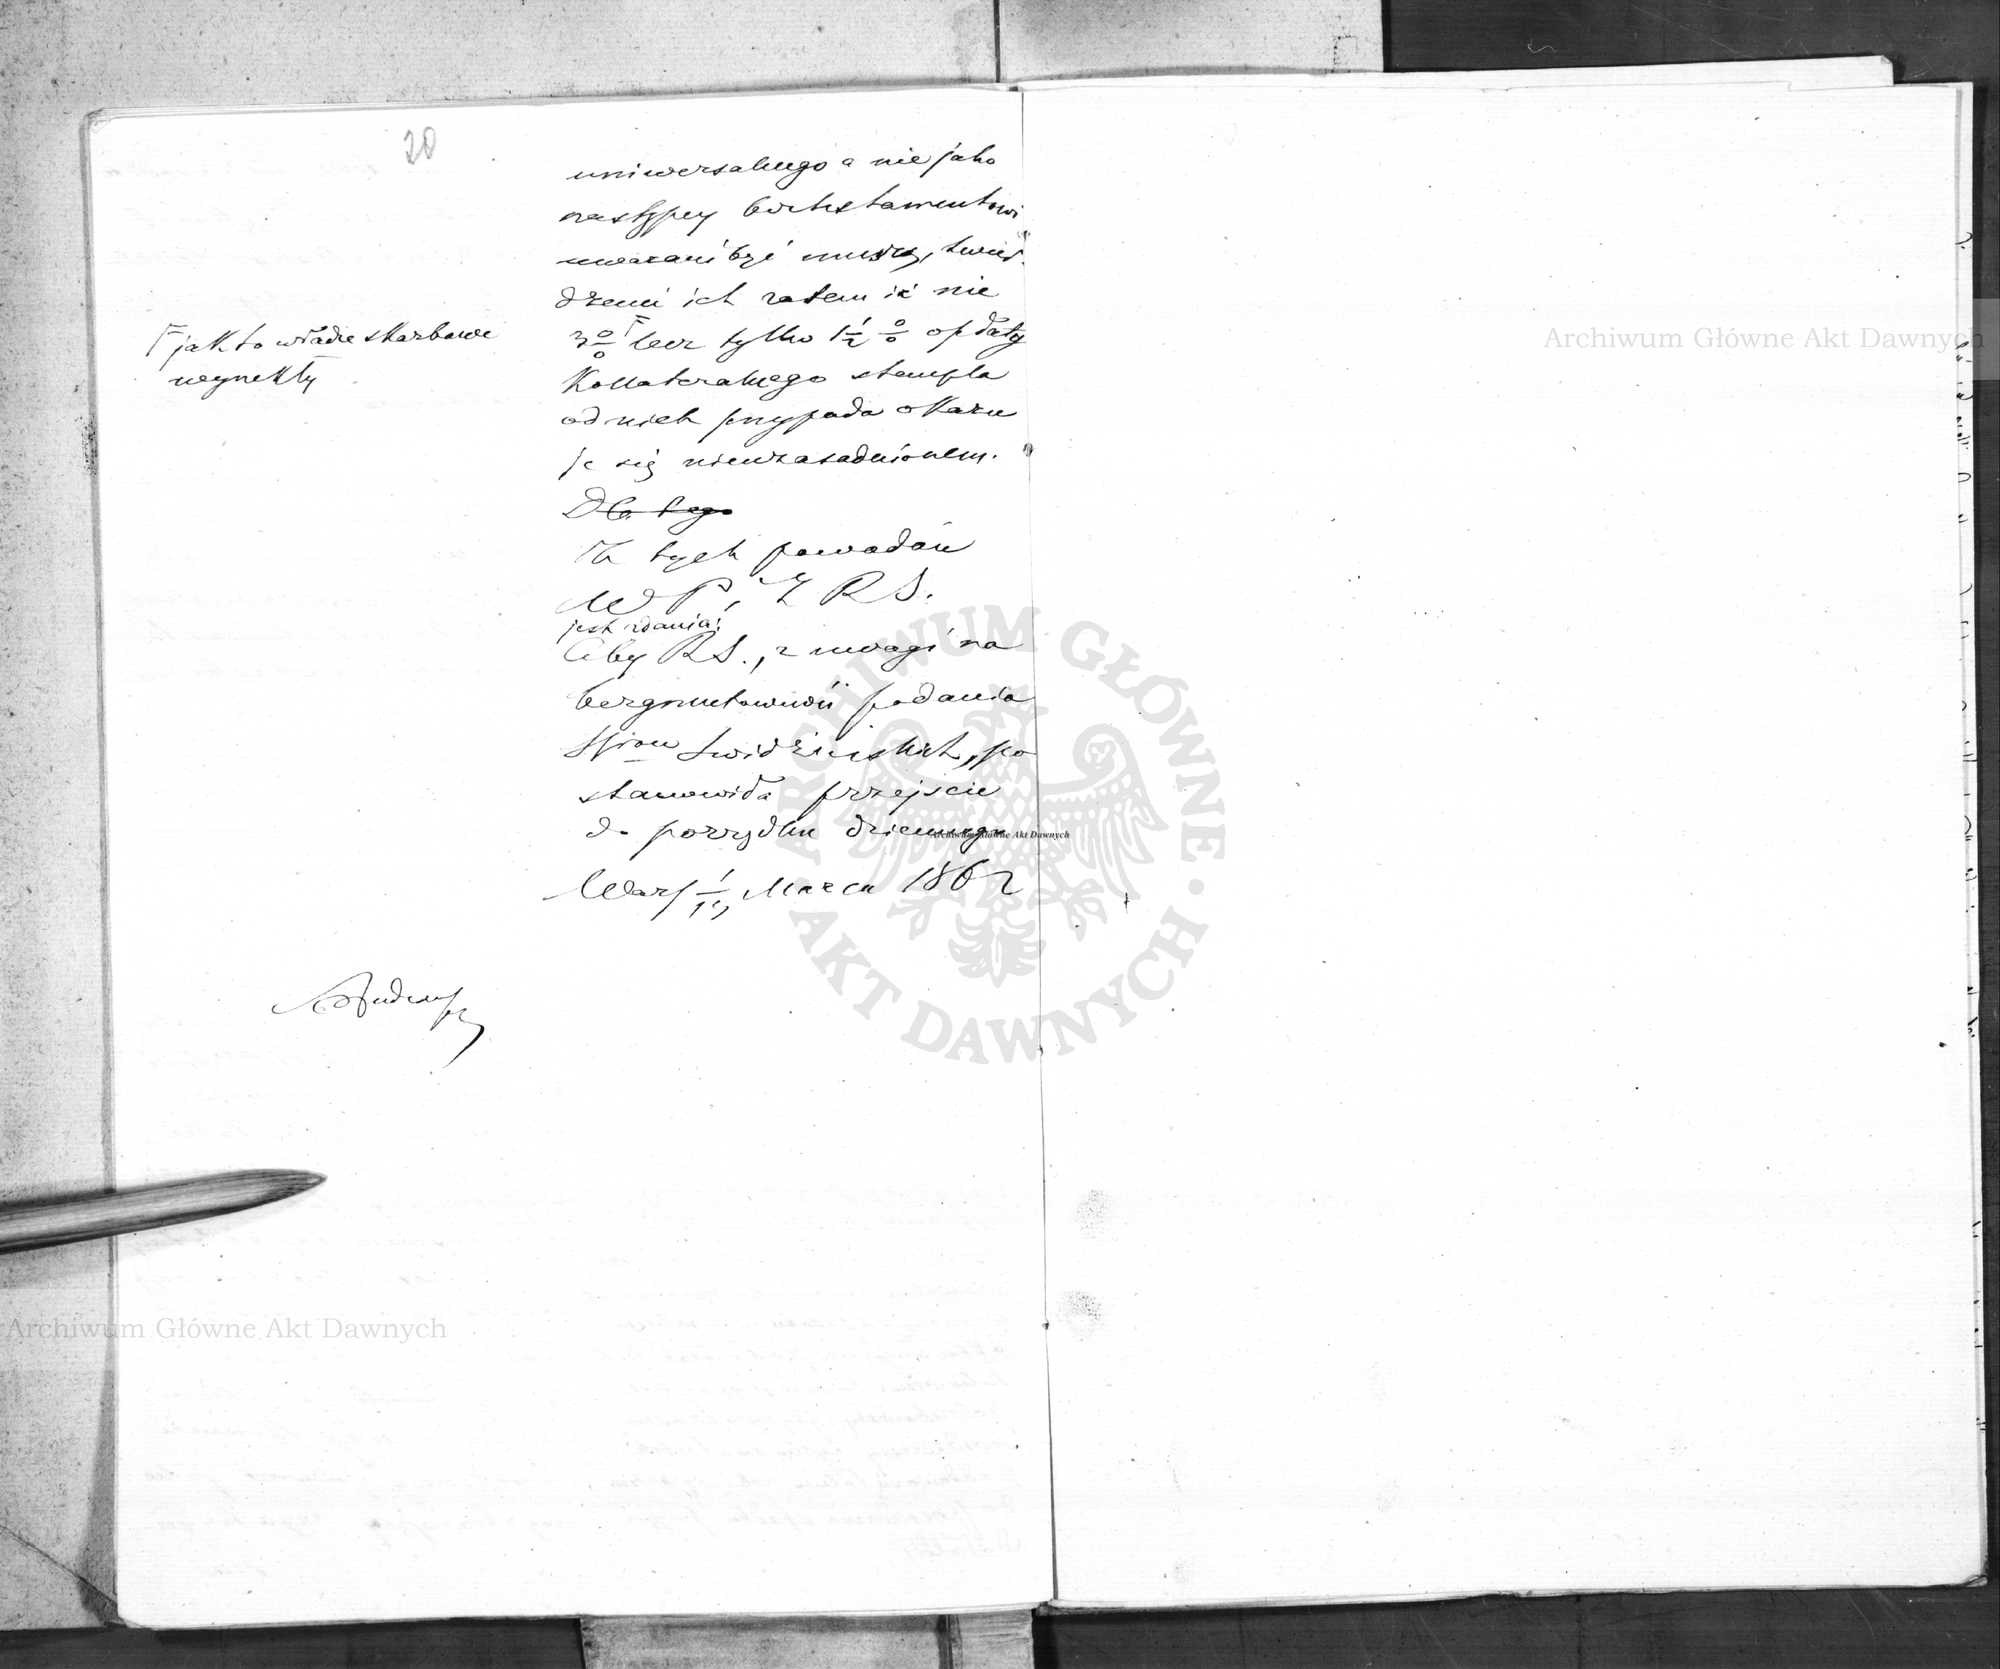 20
uniwersalnego a nie jako
następcy beztestamentowi
uważani być muszą, twier-
dzenie ich zatem iż nie
3 0/0 lecz tylko 1 1/2 0/0 opłaty
Kollateralnego stempla
od nich przypada okazu
je się nieuzasadnionem.
Dla tego
Z tych powodów
W P. i Z R S.
jest zdania:
Aby RS., z uwagi na
bezgruntowność podania
SSrów Swidzińskich, po
stanowiła przejście
do porządku dziennego
Warsz 1/13 Marca 1862
jak to władze skarbowe
wyrzekły
Archiwum Główne Akt Dawnych
Archiwum Główne Akt Dawnych
Archiwum Główne Akt Dawnych
ARCHIWUM GŁÓWNE AKT DAWNYCH